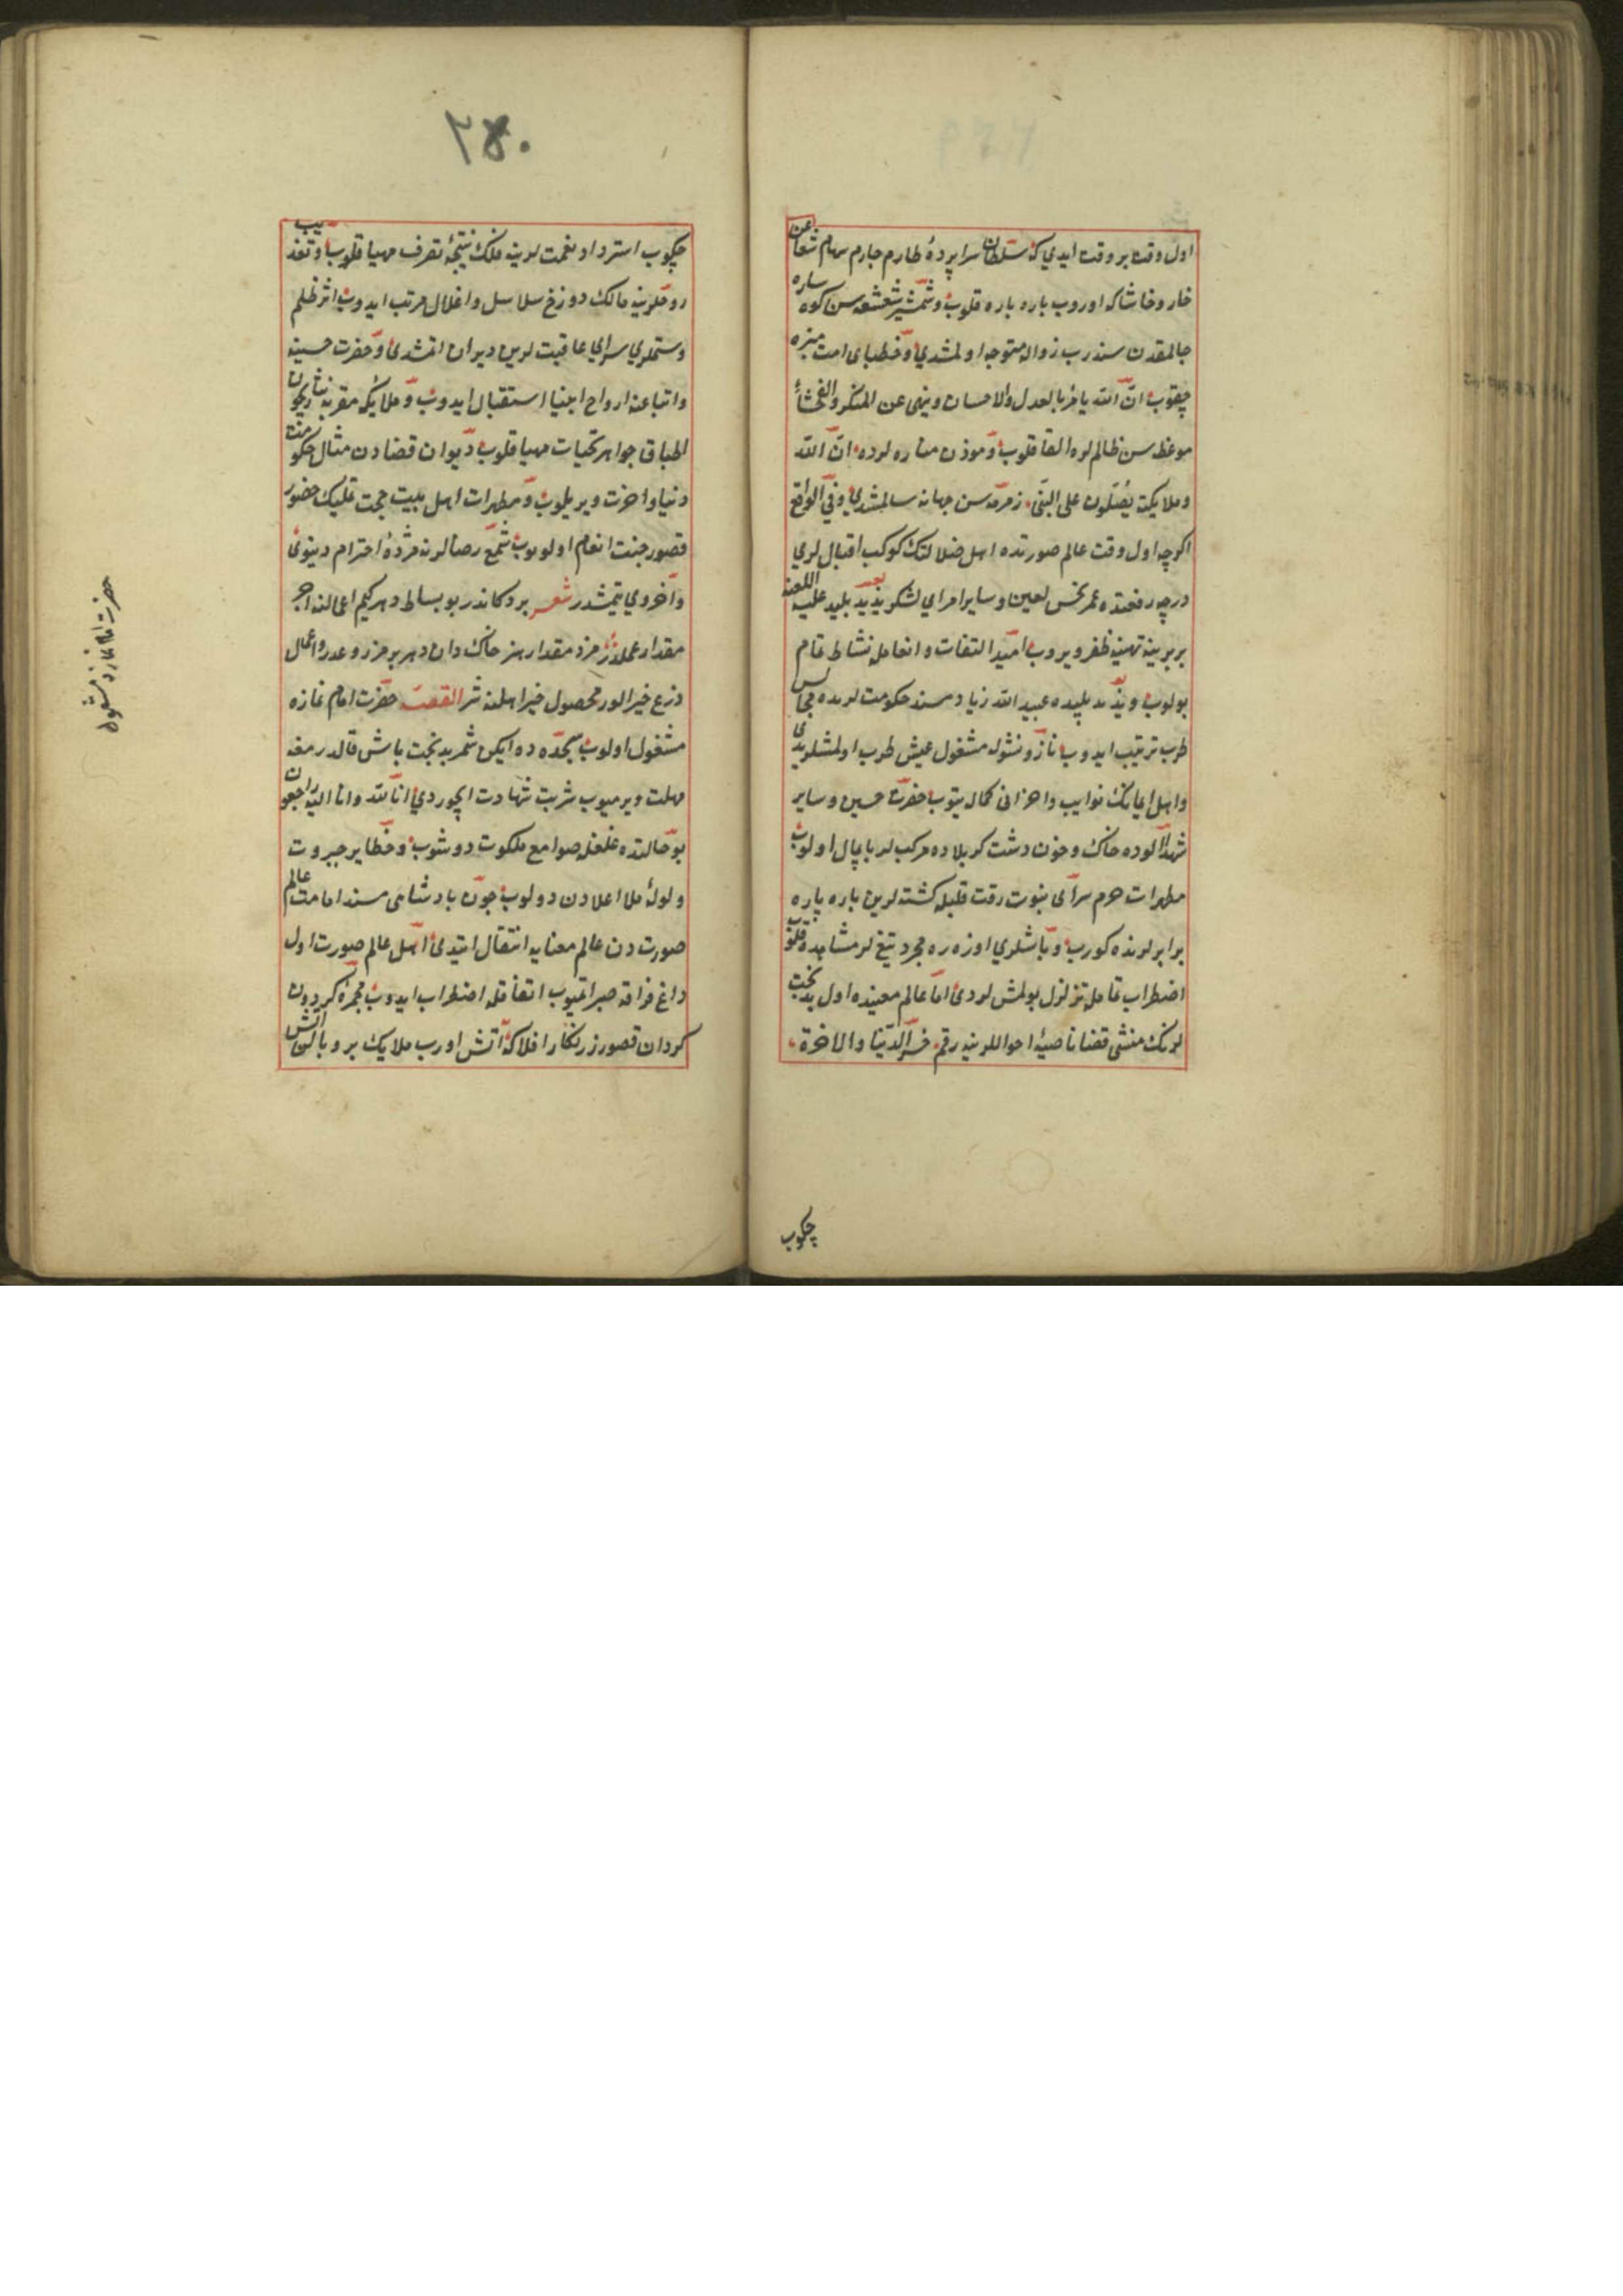 اول وقت بر وقت ایدی که سلطان سراپردهٔ طارم چارم سهام شعاعن
خار و خاشاکه اوروب پاره پاره قلوب و شمشیر شعشعه سن کوه ساره
چالمقدن سندرب زواله متوجه اولمشدی و خطبای امت منبره
چقوب ان الله یامر بالعدل والاحسان وینهی عن المنکر والفحشاء
موعظه سن ظالملره القا قلوب و موذن مناره لرده ان الله
وملایکته یصلون علی النبی زمزمه سن جهانه سالمشدی وفی الواقع
اکرچه اول وقت عالم صورتده اهل ضلالتک کوکب اقبال لری
درجه رفعتده عمر نحس لعین و سایر امرای لشکر یزید پلید علیه اللعنه
بربرینه تهنیه ظفر ویروب امید التفات و انعامله نشاط تمام
بولوب و یزید پلیده عبید الله زیاد مسند حکومت لرنده مجالس
طرب ترتیب ایدوب ناز و نشوله مشغول عیش طرب اولمشلردی
واهل ایمانک نوایب واحزانی کمال یتوب حضرت حسین و سایر
شهدا آلوده خاک و خون دشت کربلاده مرکب لر پایمال اولوب
مطهرات حرم سرای نبوت رقت قلبله کشته لرین پاره پاره
برابر لرنده کورب و باشلری اوزره مجرد تیغ لر مشاهده قلوب
اضطراب تمامله تزلزل بولمش لردی اما عالم معنیده اول بدبخت
لرنک منشی قضا ناصیهٔ احواللرینه رقم خسر الدنیا والاخرة
چکوب
٢٨٠
چکوب استرداد نعمت لرینه فلک نتیجهٔ تصرف مهیا قلوب و تعذیب
روحلرینه مالک دوزخ سلاسل واغلال مرتب ایدوب اثر ظلم
وستملری سرای عاقبت لرین ویران اتمشدی و حضرت حسینه
واتباعنه ارواح انبیا استقبال ایدوب و ملایکه مقربه نثاریچون
اطباق جواهر تحیات مهیا قلوب دیوان قضادن مثال حکومت
دنیا و اخرت ویریلوب و مطهرات اهل بیت جهت قلیک حضور
قصور جنت انعام اولوب شمع رضالرنه مژدهٔ احترام دینوی
و اخروی یتمشدر شعر بردکاندر بو بساط دهر کیم اعمالنه اجر
مقدار عملدر مزد مقدار هنر خاک دان دهر بر مزرعدر و اعمال
ذرع خیر الور محصول خیر اهلنه شر القصه حضرت امام نمازه
مشغول اولوب سجده ده ایکن شمر بدبخت باش قالدرمغه
مهلت ویرمیوب شربت شهادت ایچوردی انا لله وانا الیه راجعون
بو حالتده غلغله صوامع ملکوت دوشوب و خطایر جبروت
ولولهٔ ملا اعلادن دولوب چون پادشاهی مسند امامت عالم
صورت دن عالم معنایه انتقال ایتدی اهل عالم صورت اول
داغ فراقه صبر اتمیوب اتفاقله اضطراب ایدوب مجمرهٔ کردون
کردان قصور زرنکار افلاکه آتش اورب ملایک پر و بالن آتش
حضرت امام نمازده مشغول